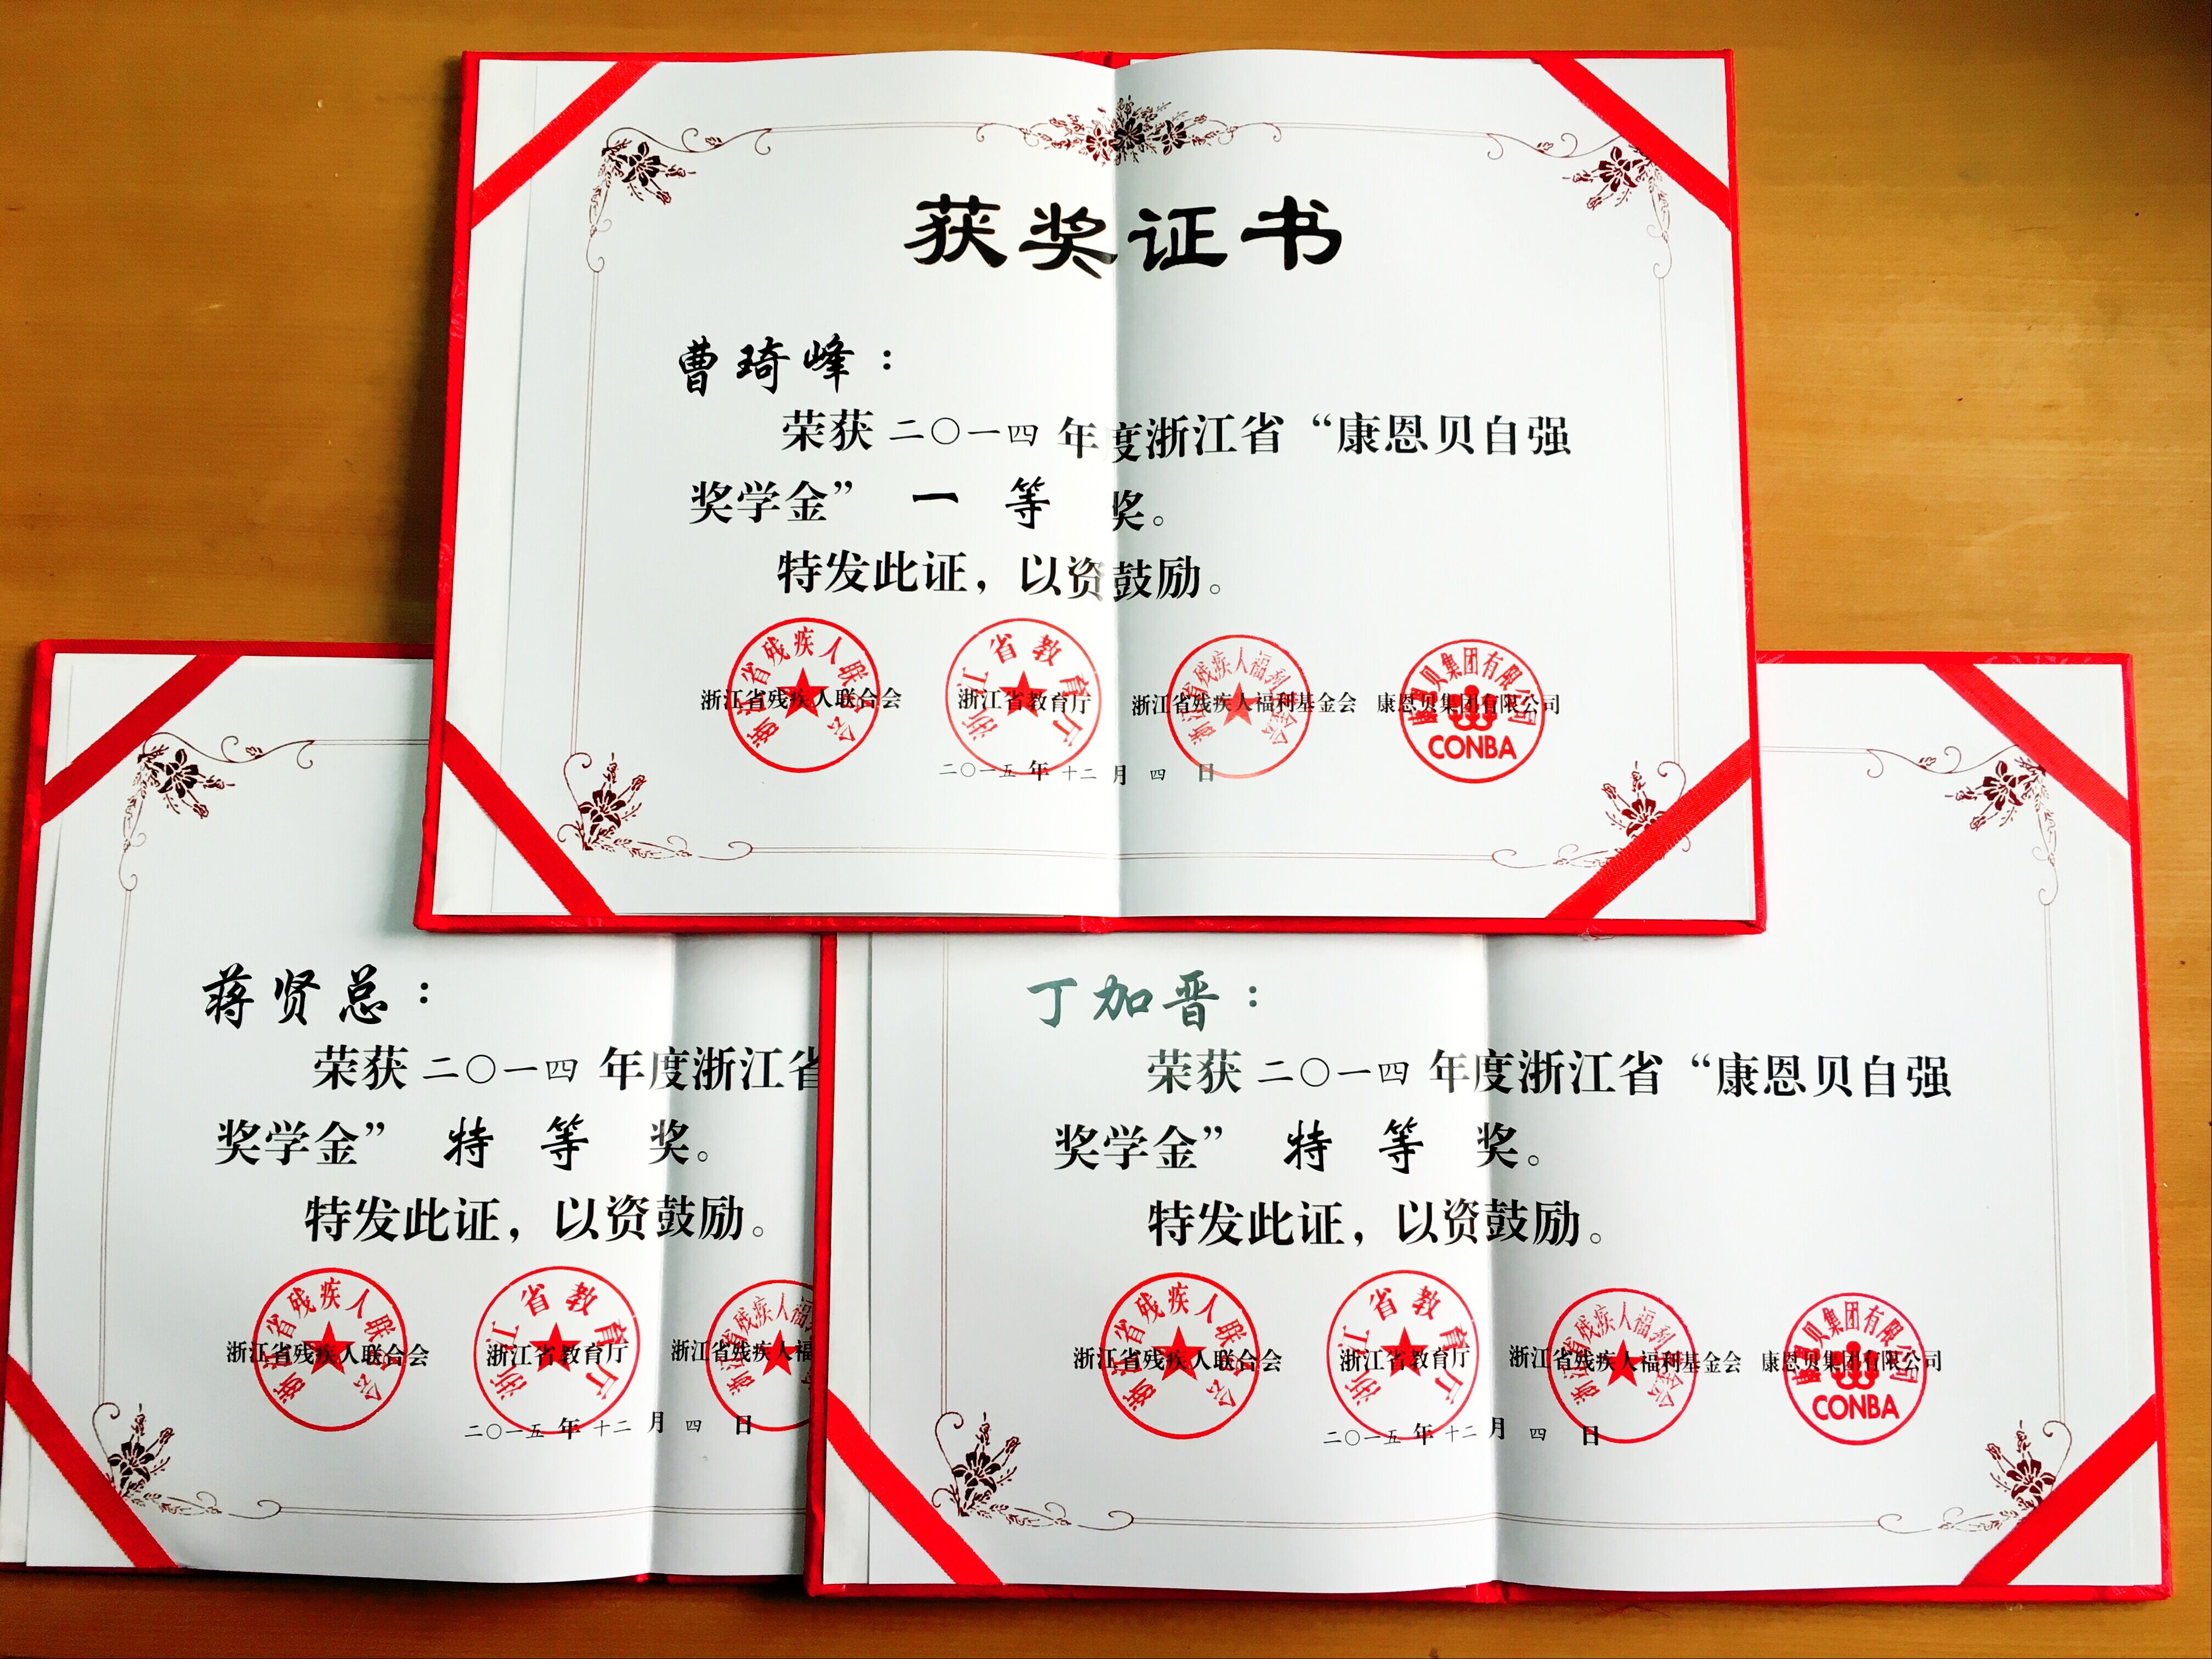 获奖证书
曹琦峰：
荣获 二〇一四 年度浙江省“康恩贝自强
奖学金” 一 等 奖。
特发此证，以资鼓励。
浙江省残疾人联合会
浙江省教育厅
浙江省残疾人福利基金会
康恩贝集团有限公司
浙江省残疾人联合会 浙江省教育厅 浙江省残疾人福利基金会 康恩贝集团有限公司
CONBA
二〇一五 年 十二 月 四 日
蒋贤总：
荣获 二〇一四 年度浙江省
奖学金” 特 等 奖。
特发此证，以资鼓励。
浙江省残疾人联合会
浙江省教育厅
浙江省残疾人福
浙江省残疾人联合会 浙江省教育厅 浙江省残疾人福
二〇一五 年 十二 月 四 日
丁加晋：
荣获 二〇一四 年度浙江省“康恩贝自强
奖学金” 特 等 奖。
特发此证，以资鼓励。
浙江省残疾人联合会
浙江省教育厅
浙江省残疾人福利基金会
康恩贝集团有限公司
浙江省残疾人联合会 浙江省教育厅 浙江省残疾人福利基金会 康恩贝集团有限公司
CONBA
二〇一五 年 十二 月 四 日